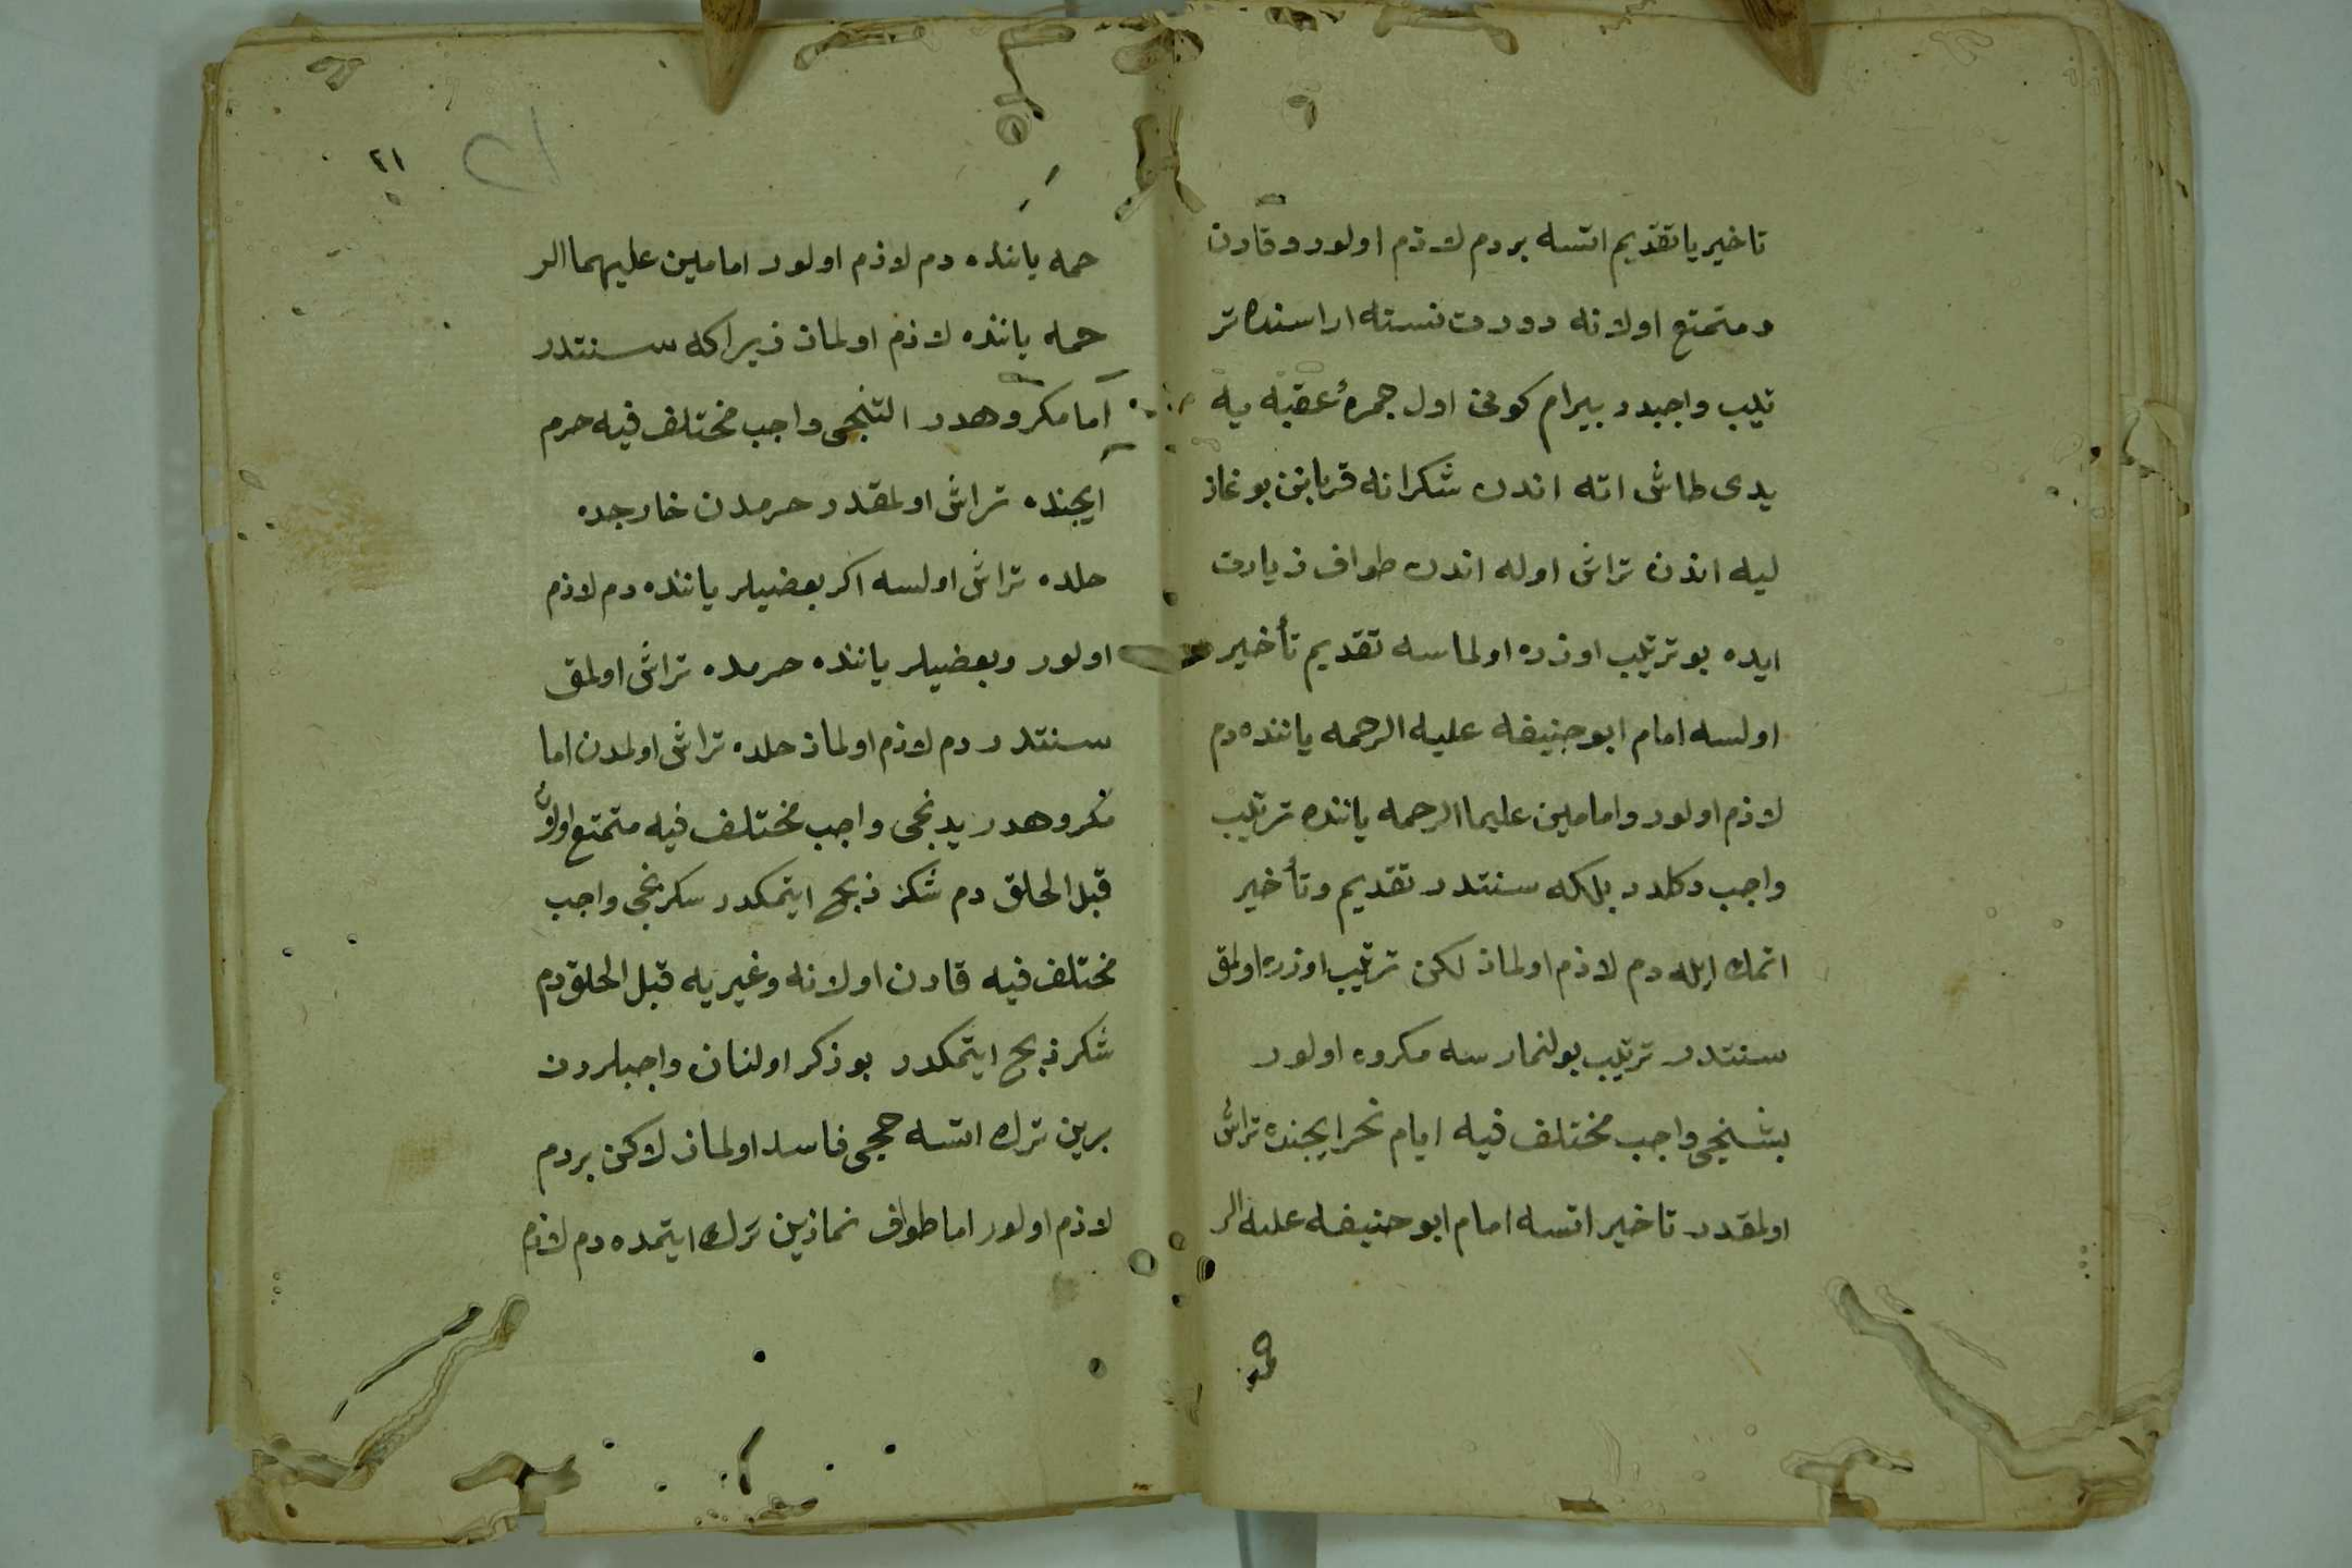 تاخیر یا تقدیم اتسه بر دم لازم اولور و قارن
و متمتع اولانه دورت نسنه اراسنده تر
تیب واجبدر بیرام کونی اول جمرهٔ عقبه یه
یدی طاش اته اندن شکرانه قربانن بوغاز
لیه اندن تراش اوله اندن طواف زیارت
ایده بو ترتیب اوزره اولماسه تقدیم تأخیر
اولسه امام ابو حنیفه علیه الرحمه یاننده دم
لازم اولور و امامین علیما الرحمه یاننده ترتیب
واجب دکلدر بلکه سنتدر تقدیم و تأخیر
اتمك ایله دم لازم اولماز لکن ترتیب اوزره اولمق
سنتدر ترتیب بولنمارسه مکروه اولور
بشنجی واجب مختلف فیه ایام نحر ایجنده تراش
اولمقدر تاخیر اتسه امام ابو حنیفه علیه الر
حمه
٢١
٢١
حمه یاننده دم لازم اولور امامین علیهما الر
حمه یاننده لازم اولماز زیراکه سنتدر
اما مکروهدر التنجی واجب مختلف فیه حرم
ایجنده تراش اولمقدر حرمدن خارجده
حلده تراش اولسه اکر بعضیلر یاننده دم لازم
اولور وبعضیلر یاننده حرمده تراش اولمق
سنتدر دم لازم اولماز حلده تراش اولمدن اما
مکروهدر یدنجی واجب مختلف فیه متمتع اولان
قبل الحلق دم شکر ذبح ایتمکدر سکزنجی واجب
مختلف فیه قارن اولانه وغیریه قبل الحلق دم
شکر ذبح ایتمکدر بو ذکر اولنان واجبلردن
برین ترك اتسه حجی فاسد اولماز لاکن بر دم
لازم اولور اما طواف نمازین ترك ایتمده دم لازم